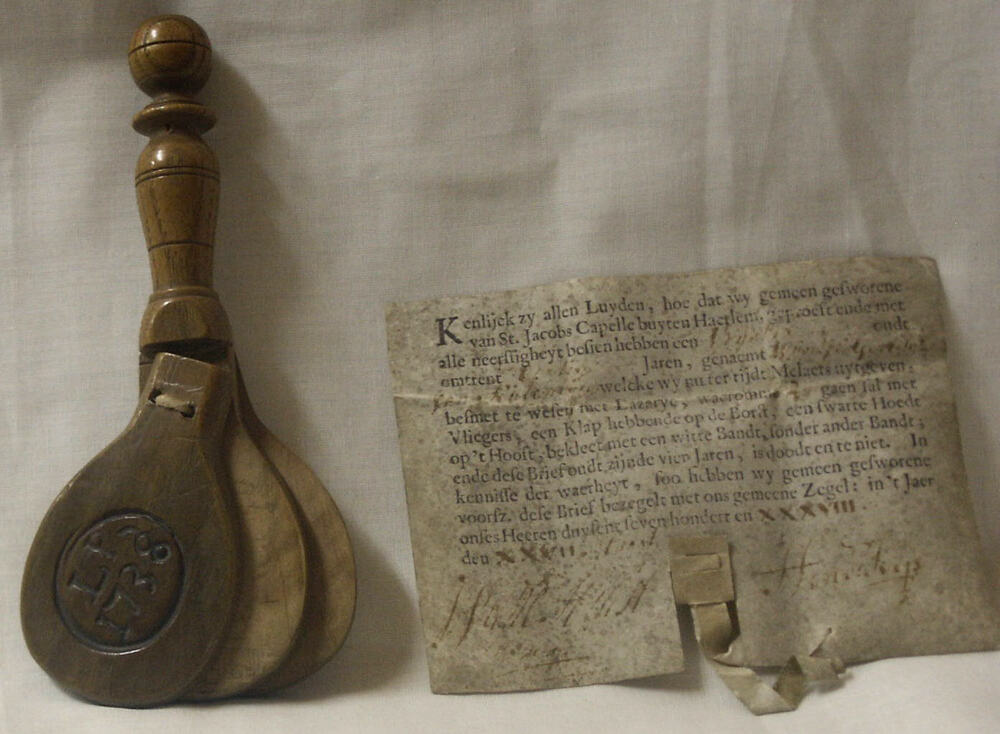 LP
1738
Kenlijck zy allen Luyden, hoe dat wy gemeen gesworene
van St. Jacobs Capelle buyten Haerlem, geproeft ende met
alle neerstigheyt besien hebben een oudt
omtrent Jaren, genaemt
welcke wy nu ter tijdt Melaets uytgeven,
besmet te wesen met Lazarye, waerom gaen sal met
Vliegers, een Klap hebbende op de Borst, een swarte Hoedt
op 't Hooft, bekleet met een witte Bandt, sonder ander Bandt;
ende dese Brief oudt zijnde vier Jaren, is doodt en te niet. In
kennisse der waerheyt, soo hebben wy gemeen gesworene
voorsz. dese Brief bezegelt met ons gemeene Zegel: in 't Jaer
onses Heeren duysent seven hondert en XXXVIII.
den